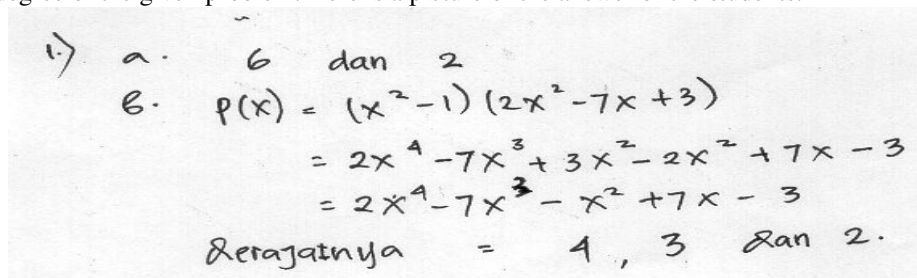 1.) a. 6 dan 2
b. P(x) = (x² - 1) (2x² - 7x + 3)
= 2x⁴ - 7x³ + 3x² - 2x² + 7x - 3
= 2x⁴ - 7x³ - x² + 7x - 3
Derajatnya = 4, 3 dan 2.